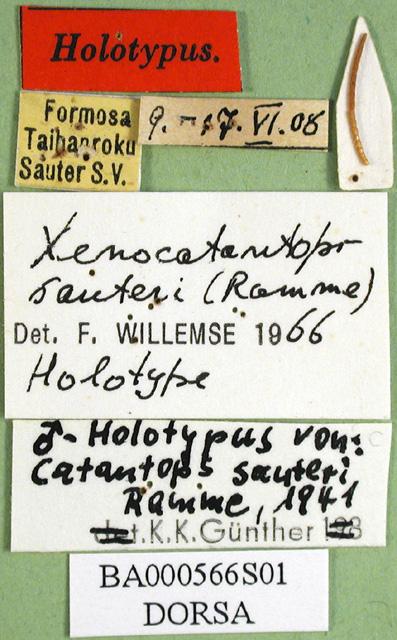 Holotypus.
Formosa
Taihanroku
Sauter S.V.
9. - 17. VI. 08
Xenocatantops
sauteri (Ramme)
Det. F. WILLEMSE 1966
Holotype
♂- Holotypus von:
Catantops sauteri
Ramme, 1941
det. K.K. Günther 198
BA000566S01
DORSA